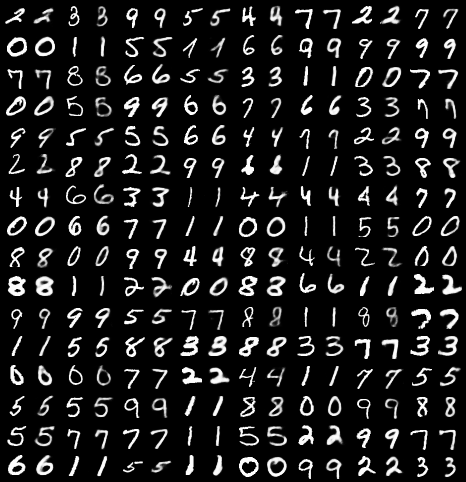 2 2 3 3 9 9 5 5 4 4 7 7 2 2 7 7
0 0 1 1 5 5 1 1 6 6 9 9 9 9 9 9
7 7 8 8 6 6 5 5 3 3 1 1 0 0 7 7
0 0 5 5 9 9 6 6 7 7 6 6 3 3 7 7
9 9 5 5 5 5 6 6 4 4 7 7 2 2 9 9
2 2 8 8 2 2 9 9 6 6 1 1 3 3 8 8
4 4 6 6 3 3 1 1 4 4 4 4 4 4 7 7
0 0 6 6 7 7 1 1 0 0 1 1 5 5 0 0
8 8 0 0 9 9 4 4 8 8 4 4 2 2 0 0
8 8 1 1 2 2 0 0 8 8 6 6 1 1 2 2
9 9 9 9 5 5 7 7 8 8 1 1 8 8 7 7
1 1 5 5 8 8 3 3 8 8 3 3 7 7 3 3
0 0 0 0 7 7 2 2 4 4 1 1 7 7 5 5
5 5 5 5 9 9 1 1 8 8 0 0 9 9 8 8
5 5 7 7 7 7 1 1 5 5 2 2 9 9 7 7
6 6 1 1 5 5 1 1 0 0 9 9 2 2 3 3